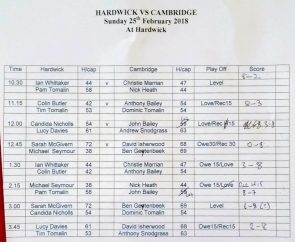 HARDWICK VS CAMBRIDGE
Sunday 25th February 2018
At Hardwick
Time Hardwick H/cap Cambridge H/cap Play Off Score
10.30 Ian Whittaker 44 v Christie Marrian 47 Level 8-2
Pam Tomalin 58 Nick Heath 44
11.15 Colin Butler 42 v Anthony Bailey 54 Love/Rec15 8-3
Tim Tomalin 53 Dominic Tomalin 54
12.00 Candida Nicholls 54 v John Bailey Love/Rec15
Lucy Davies 61 Andrew Snodgrass 63
12.45 Sarah McGivern 72 v David Isherwood 68 Owe30/Rec 30 0-8
Michael Seymour 38 Ben Geytenbeek 69
1.30 Ian Whittaker 44 Christie Marrian 47 Owe 15/Love 2-8
Colin Butler 42 Anthony Bailey 54
2.15 Michael Seymour 38 Nick Heath 44 Owe 15/Love
Pam Tomalin 58 John Bailey 8-3
3.00 Sarah McGivern 72 Ben Geytenbeek 69 Level
Candida Nicholls 54 Dominic Tomalin 54
Lucy Davies 61 David Isherwood 68 Owe/Rec15
Tim Tomalin 53 Anthony Bailey 54